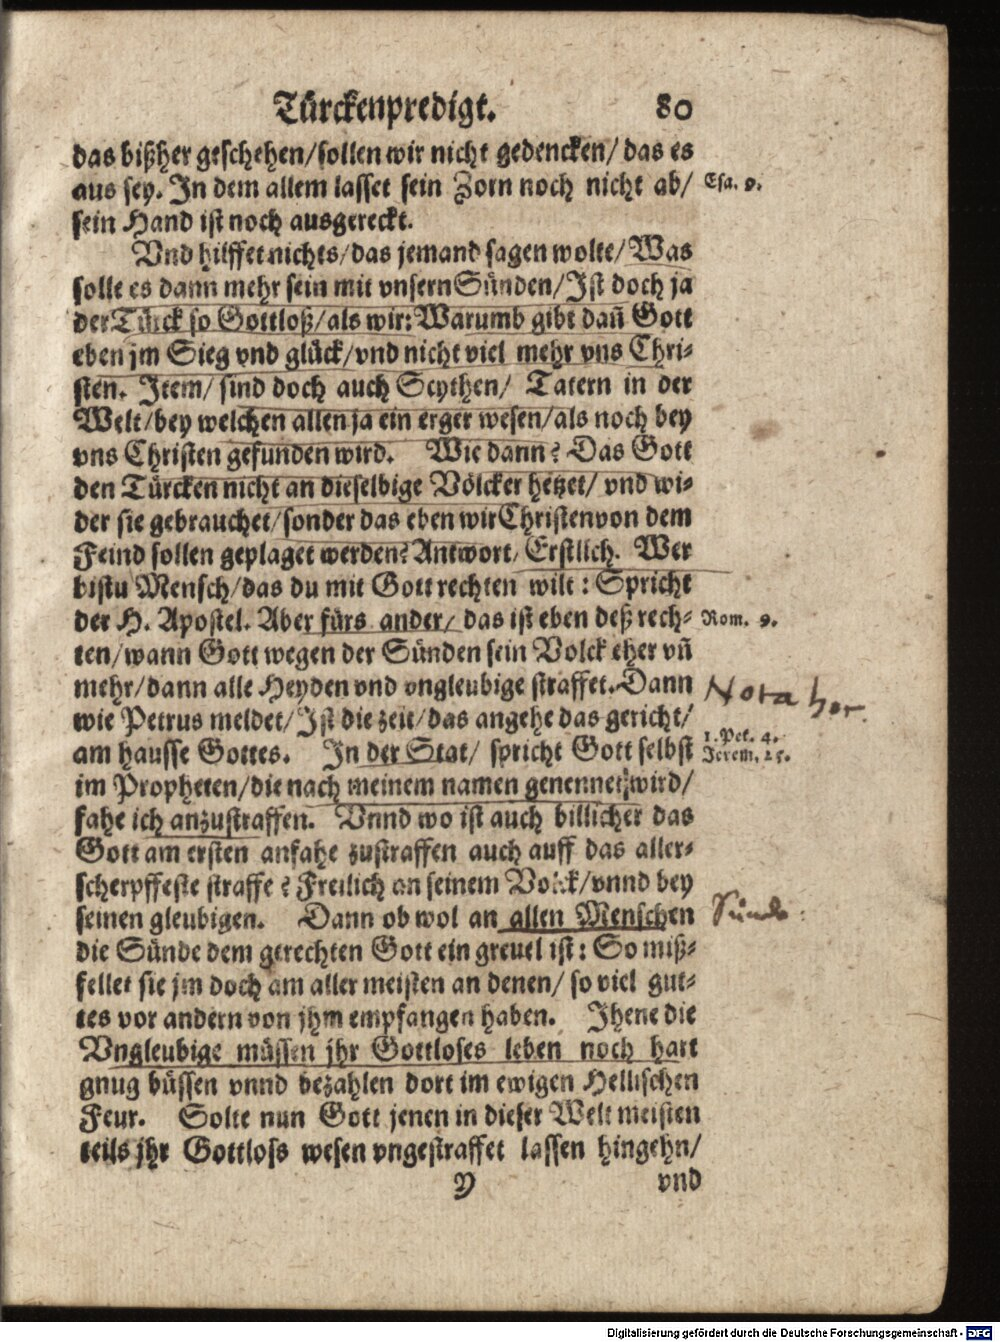 Türckenpredigt. 80
das bißher geschehen/sollen wir nicht gedencken/ das es
aus sey. In dem allem lasset sein Zorn noch nicht ab/ Esa. 9.
sein Hand ist noch ausgereckt.
Vnd hilffet nichts/das jemand sagen wolte/Was
solle es dann mehr sein mit vnsern Sünden/Ist doch ja
der Türck so Gottloß/als wir: Warumb gibt dañ Gott
eben jm Sieg vnd glück/vnd nicht viel mehr vns Chri-
sten. Item/ sind doch auch Scythen/ Tatern in der
Welt/bey welchen allen ja ein erger wesen/als noch bey
vns Christen gefunden wird. Wie dann? Das Gott
den Türcken nicht an dieselbige Völcker hetzet/ vnd wi-
der sie gebrauchet/sonder das eben wir Christen von dem
Feind sollen geplaget werden? Antwort/ Erstlich. Wer
bistu Mensch/das du mit Gott rechten wilt: Spricht
der H. Apostel. Aber fürs ander/ das ist eben deß rech- Rom. 9.
ten/wann Gott wegen der Sünden sein Volck eher vñ
mehr/dann alle Heyden vnd vngleubige straffet. Dann Nota
wie Petrus meldet/Ist die zeit/das angehe das gericht/ 1. Pet. 4.
am hausse Gottes. In der Stat/ spricht Gott selbst Jerem. 25.
im Propheten/die nach meinem namen genennet wird/
fahe ich anzustraffen. Vnnd wo ist auch billicher das
Gott am ersten anfahe zustraffen auch auff das aller-
scherpffeste straffe? Freilich an seinem Volck/vnnd bey
seinen gleubigen. Dann ob wol an allen Menschen
die Sünde dem gerechten Gott ein greuel ist: So miß-
fellet sie jm doch am aller meisten an denen/ so viel gut-
tes vor andern von jhm empfangen haben. Jhene die
Vngleubige müssen jhr Gottloses leben noch hart
gnug büssen vnnd bezahlen dort im ewigen Hellischen
Feur. Solte nun Gott jenen in dieser Welt meisten
teils jhr Gottloss wesen vngestraffet lassen hingehn/
Y vnd
Digitalisierung gefördert durch die Deutsche Forschungsgemeinschaft - DFG